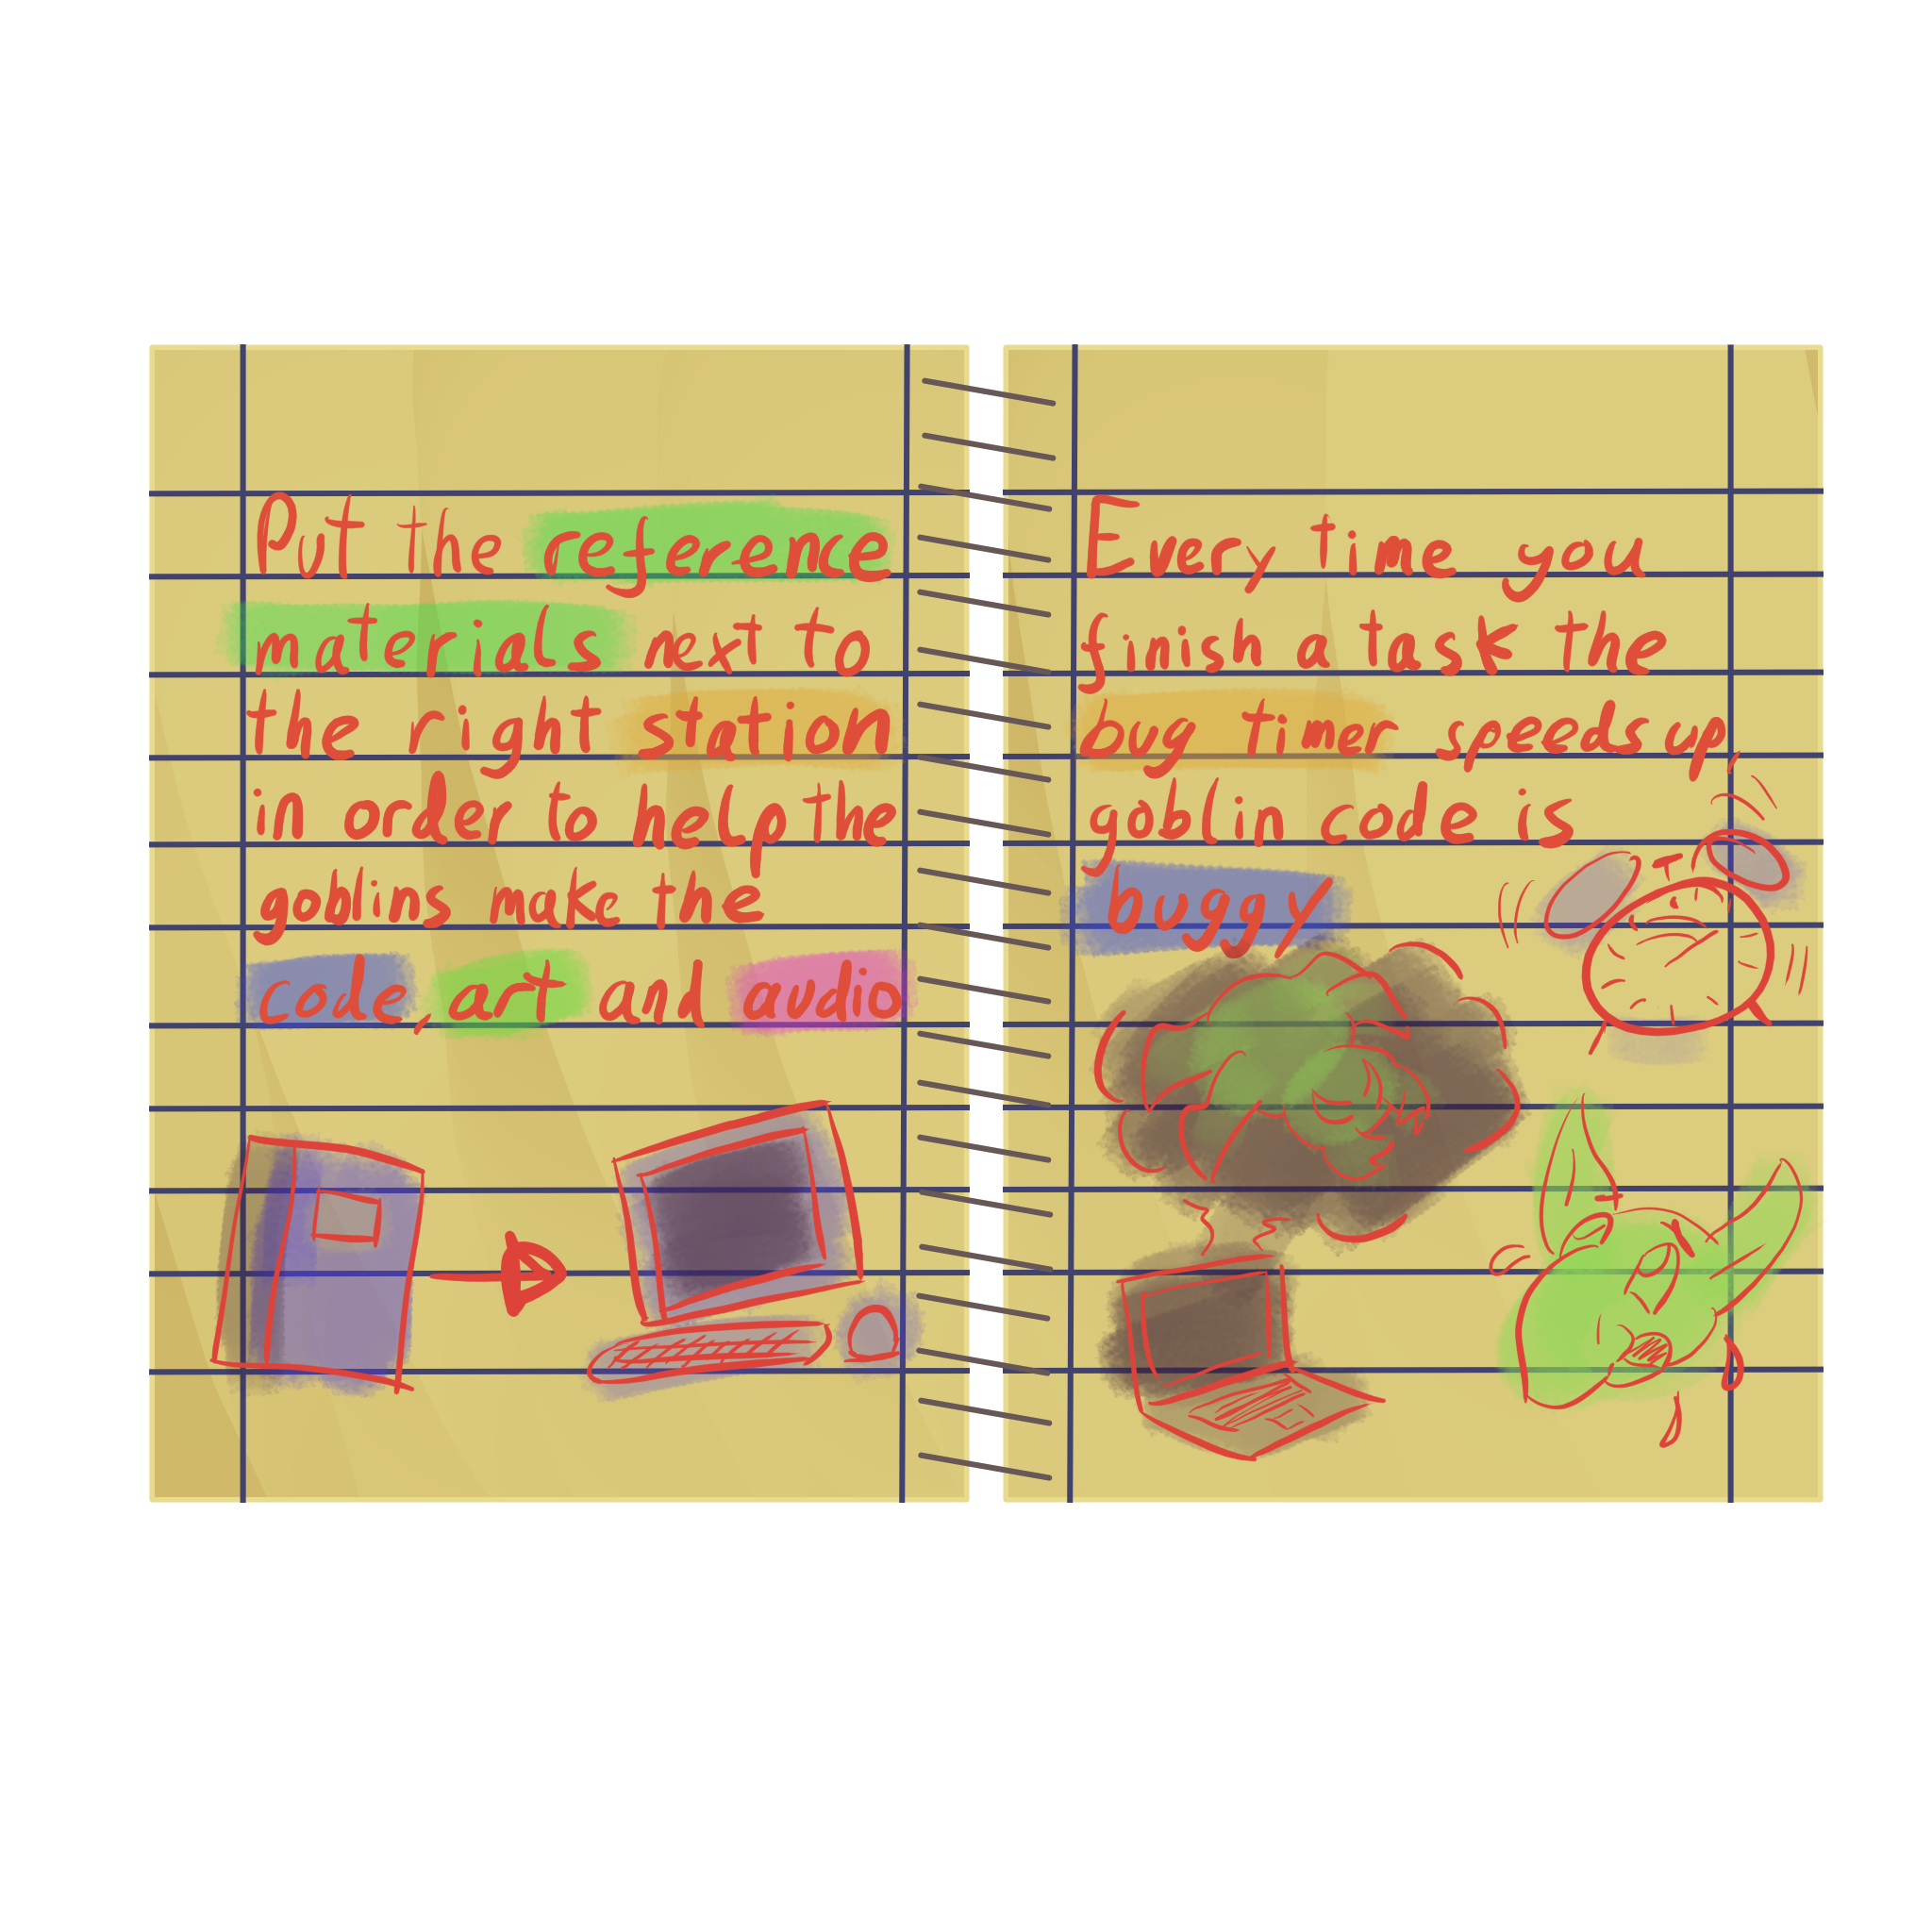 Put the reference
materials next to
the right station
in order to help the
goblins make the
code, art and audio
Every time you
finish a task the
bug timer speeds up,
goblin code is
buggy